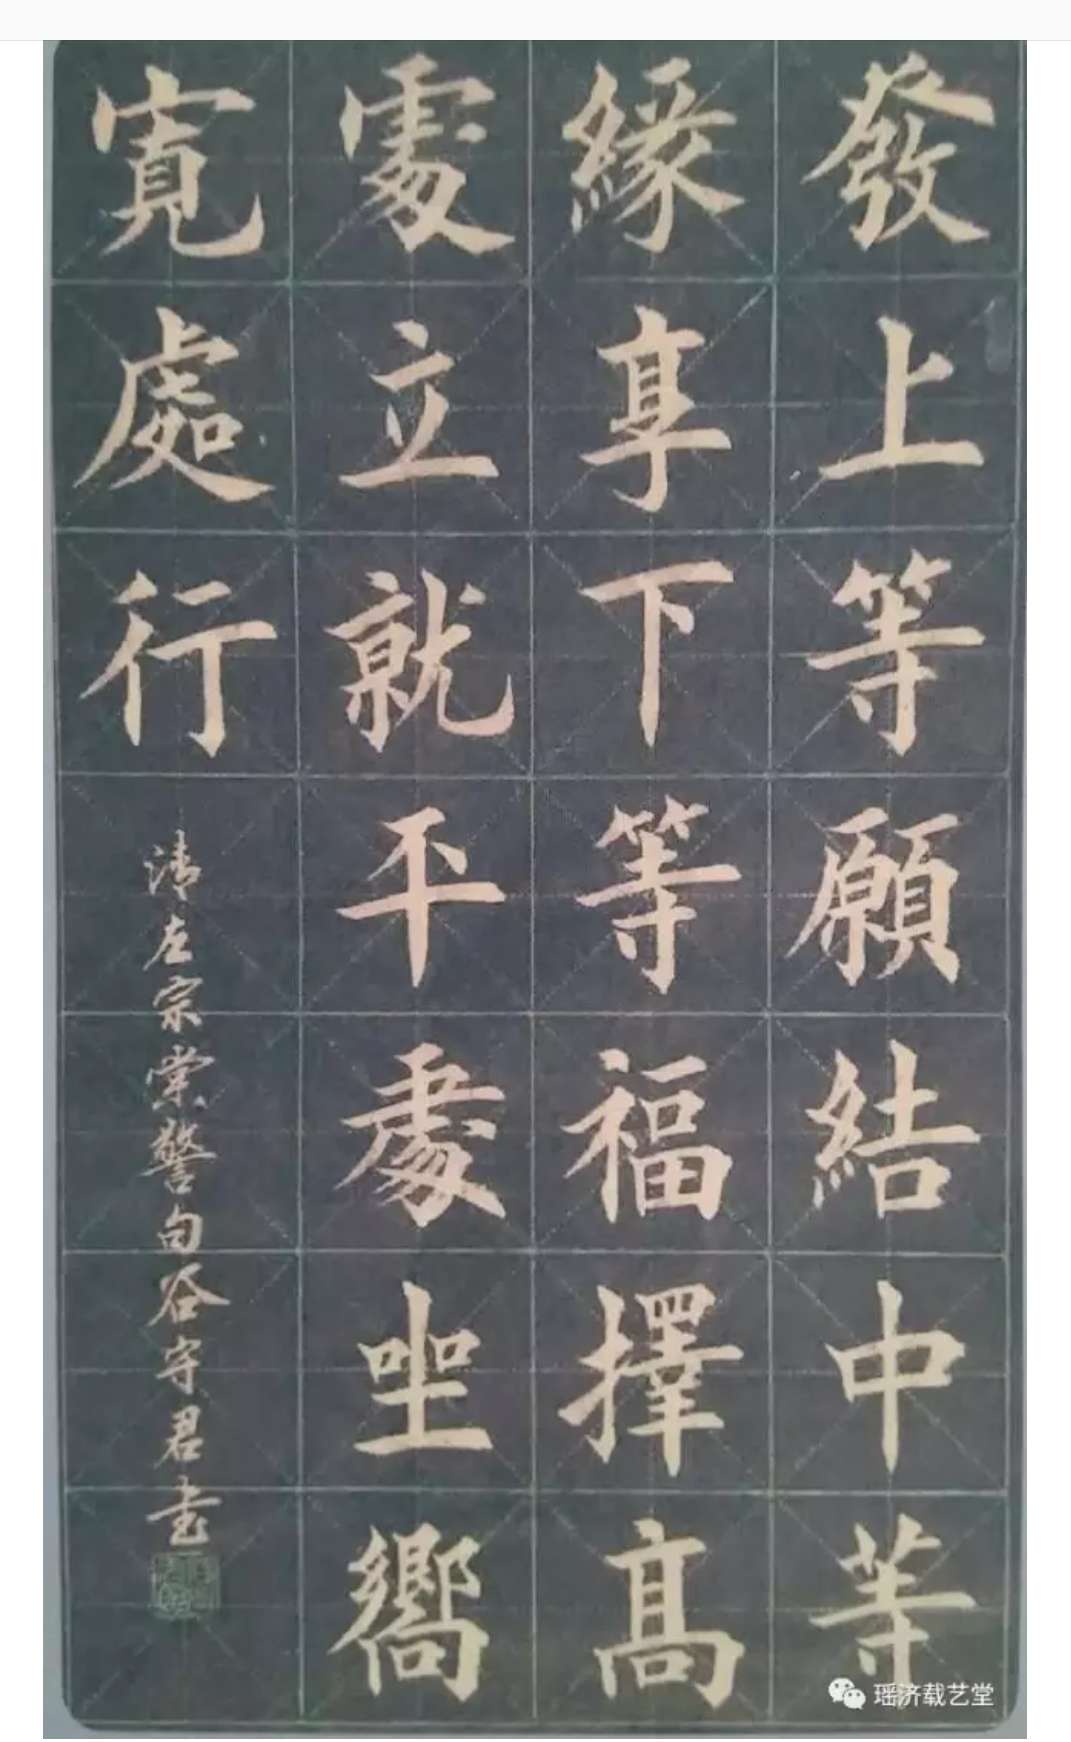 發上等願結中等
緣享下等福擇高
處立就平處坐嚮
寬處行
清左宗棠警句谷守君书
瑶济载艺堂